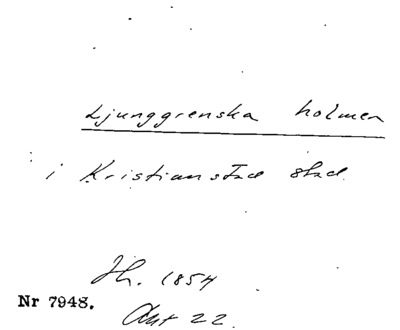 Ljunggrenska holmen
i Kristianstad stad.
Th. 1854
Nr 7948.
Akt 22.